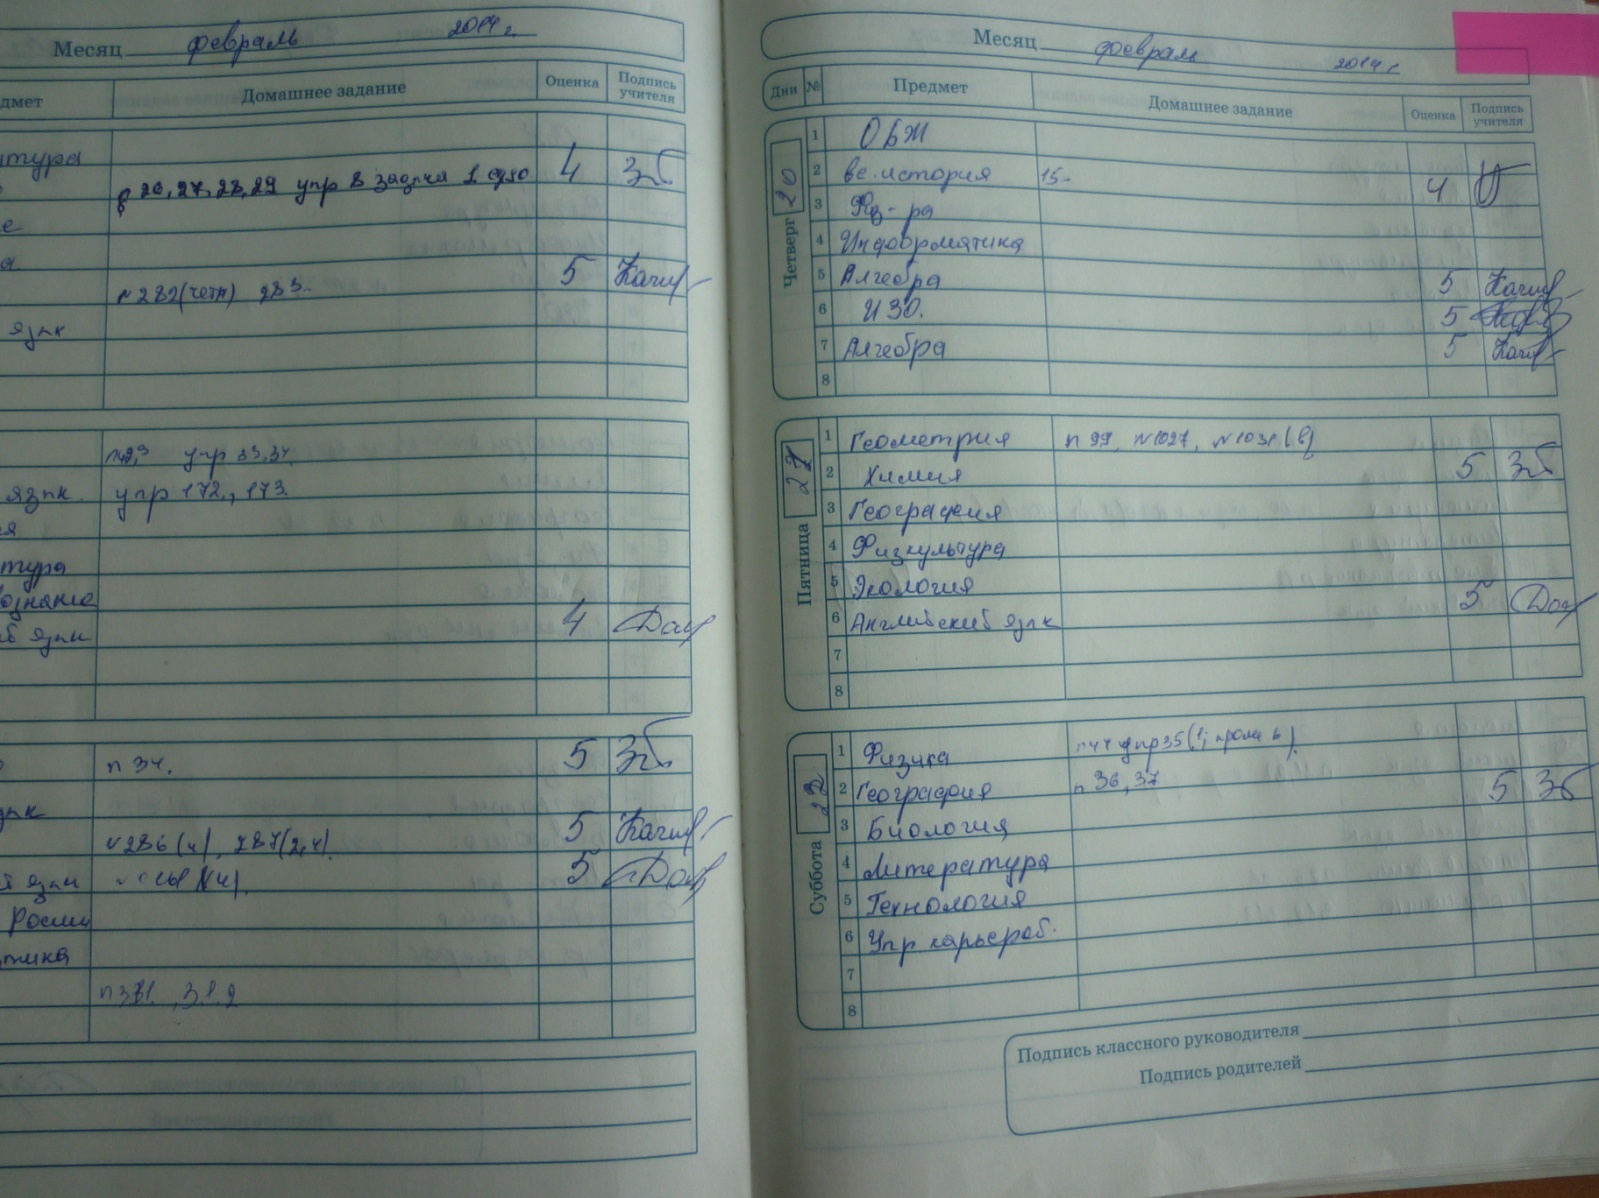 Месяц февраль 2014 г.
дмет Домашнее задание Оценка Подпись учителя
тура
29 упр 8 задача 1 4 Зб
е
а
№282(четн) 283. 5
язык
упр 33,34.
язык. упр 172, 173.
я
тура
ознание
язык 4
п 34. 5 Зб
язык
№286(4), 287(2,4). 5
язык 5
России
тика
3.1.2
Месяц февраль 2014 г.
Дни № Предмет Домашнее задание Оценка Подпись учителя
Четверг 20
1 ОБЖ
2 вс. история 15- 4
3 Физ-ра
4 Информатика
5 Алгебра 5
6 ИЗО. 5
7 Алгебра 5
8
Пятница 21
1 Геометрия п 99, №1027, №1031(в)
2 Химия 5 Зб
3 География
4 Физкультура
5 Экология
6 Английский язык 5
7
8
Суббота 22
1 Физика упр35
2 География п 36, 37 5 Зб
3 Биология
4 Литература
5 Технология
6 Упр карьероб.
7
8
Подпись классного руководителя
Подпись родителей